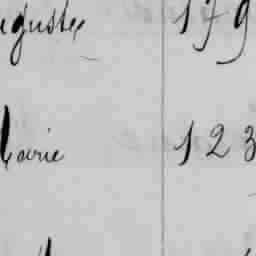 uguste 179
Marie 123